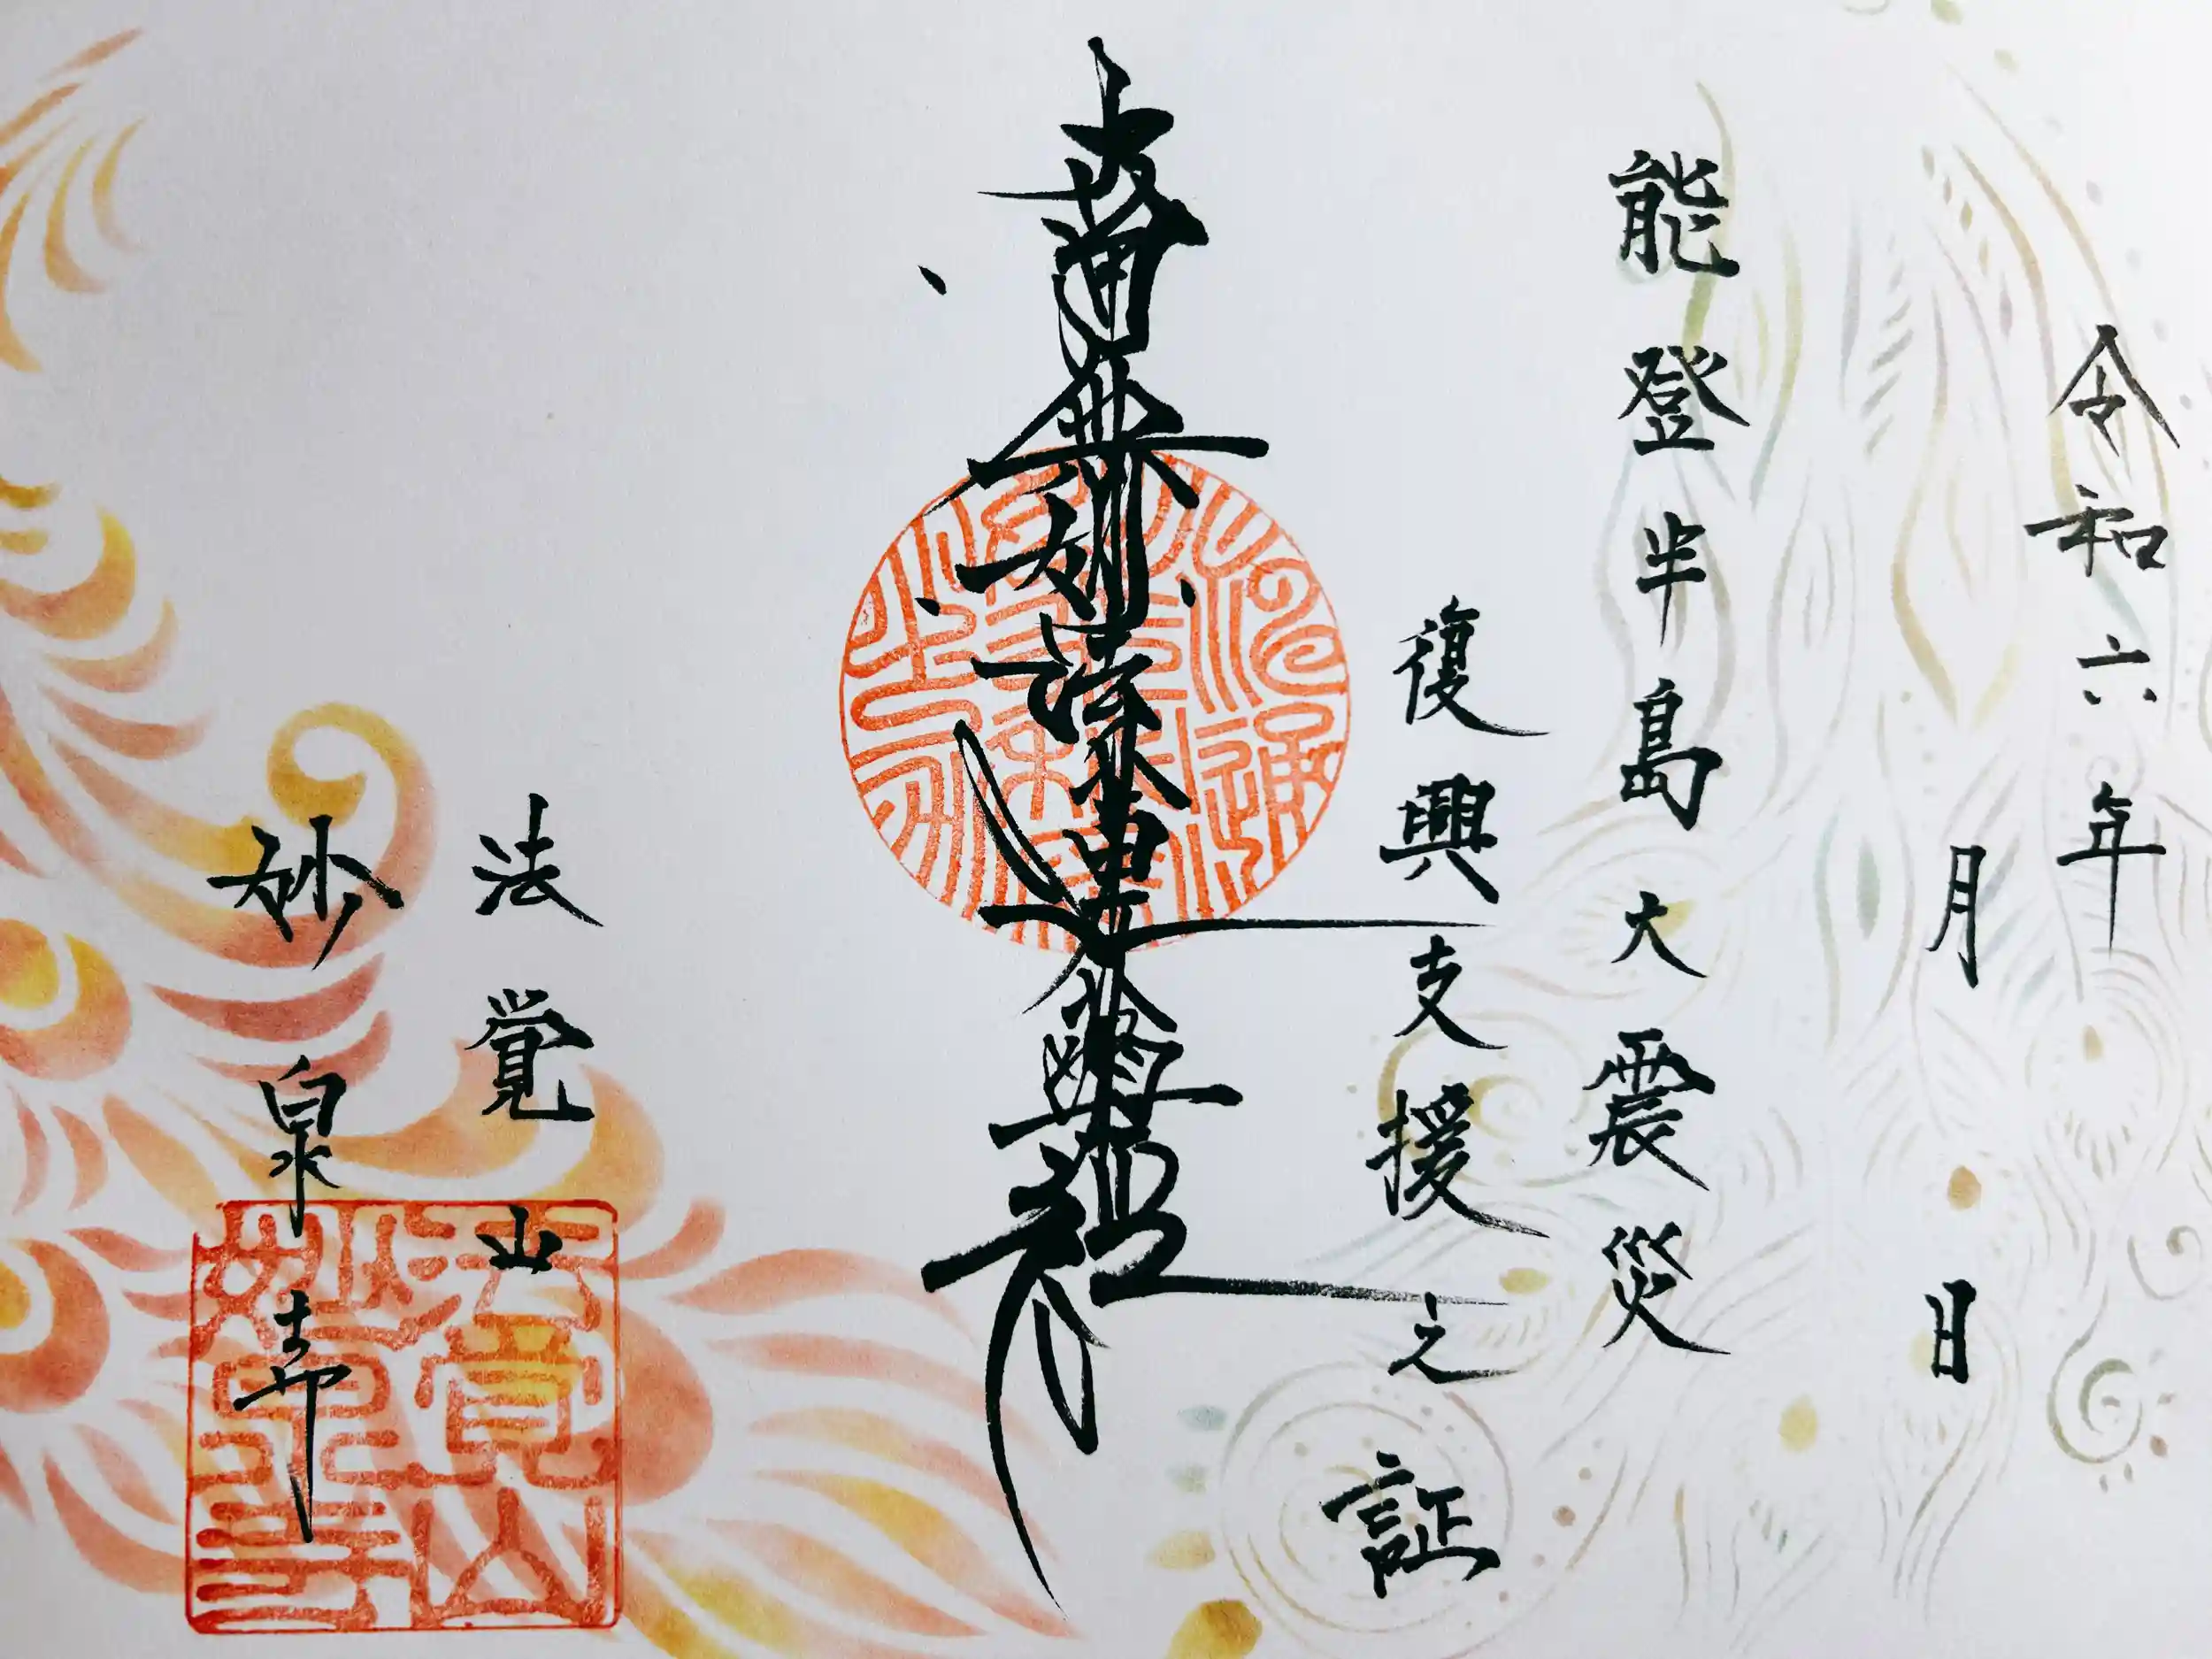 令和六年
月 日
能登半島大震災
復興支援之証
南無妙法蓮華経
法覚山
妙泉寺
法覚山
妙泉寺